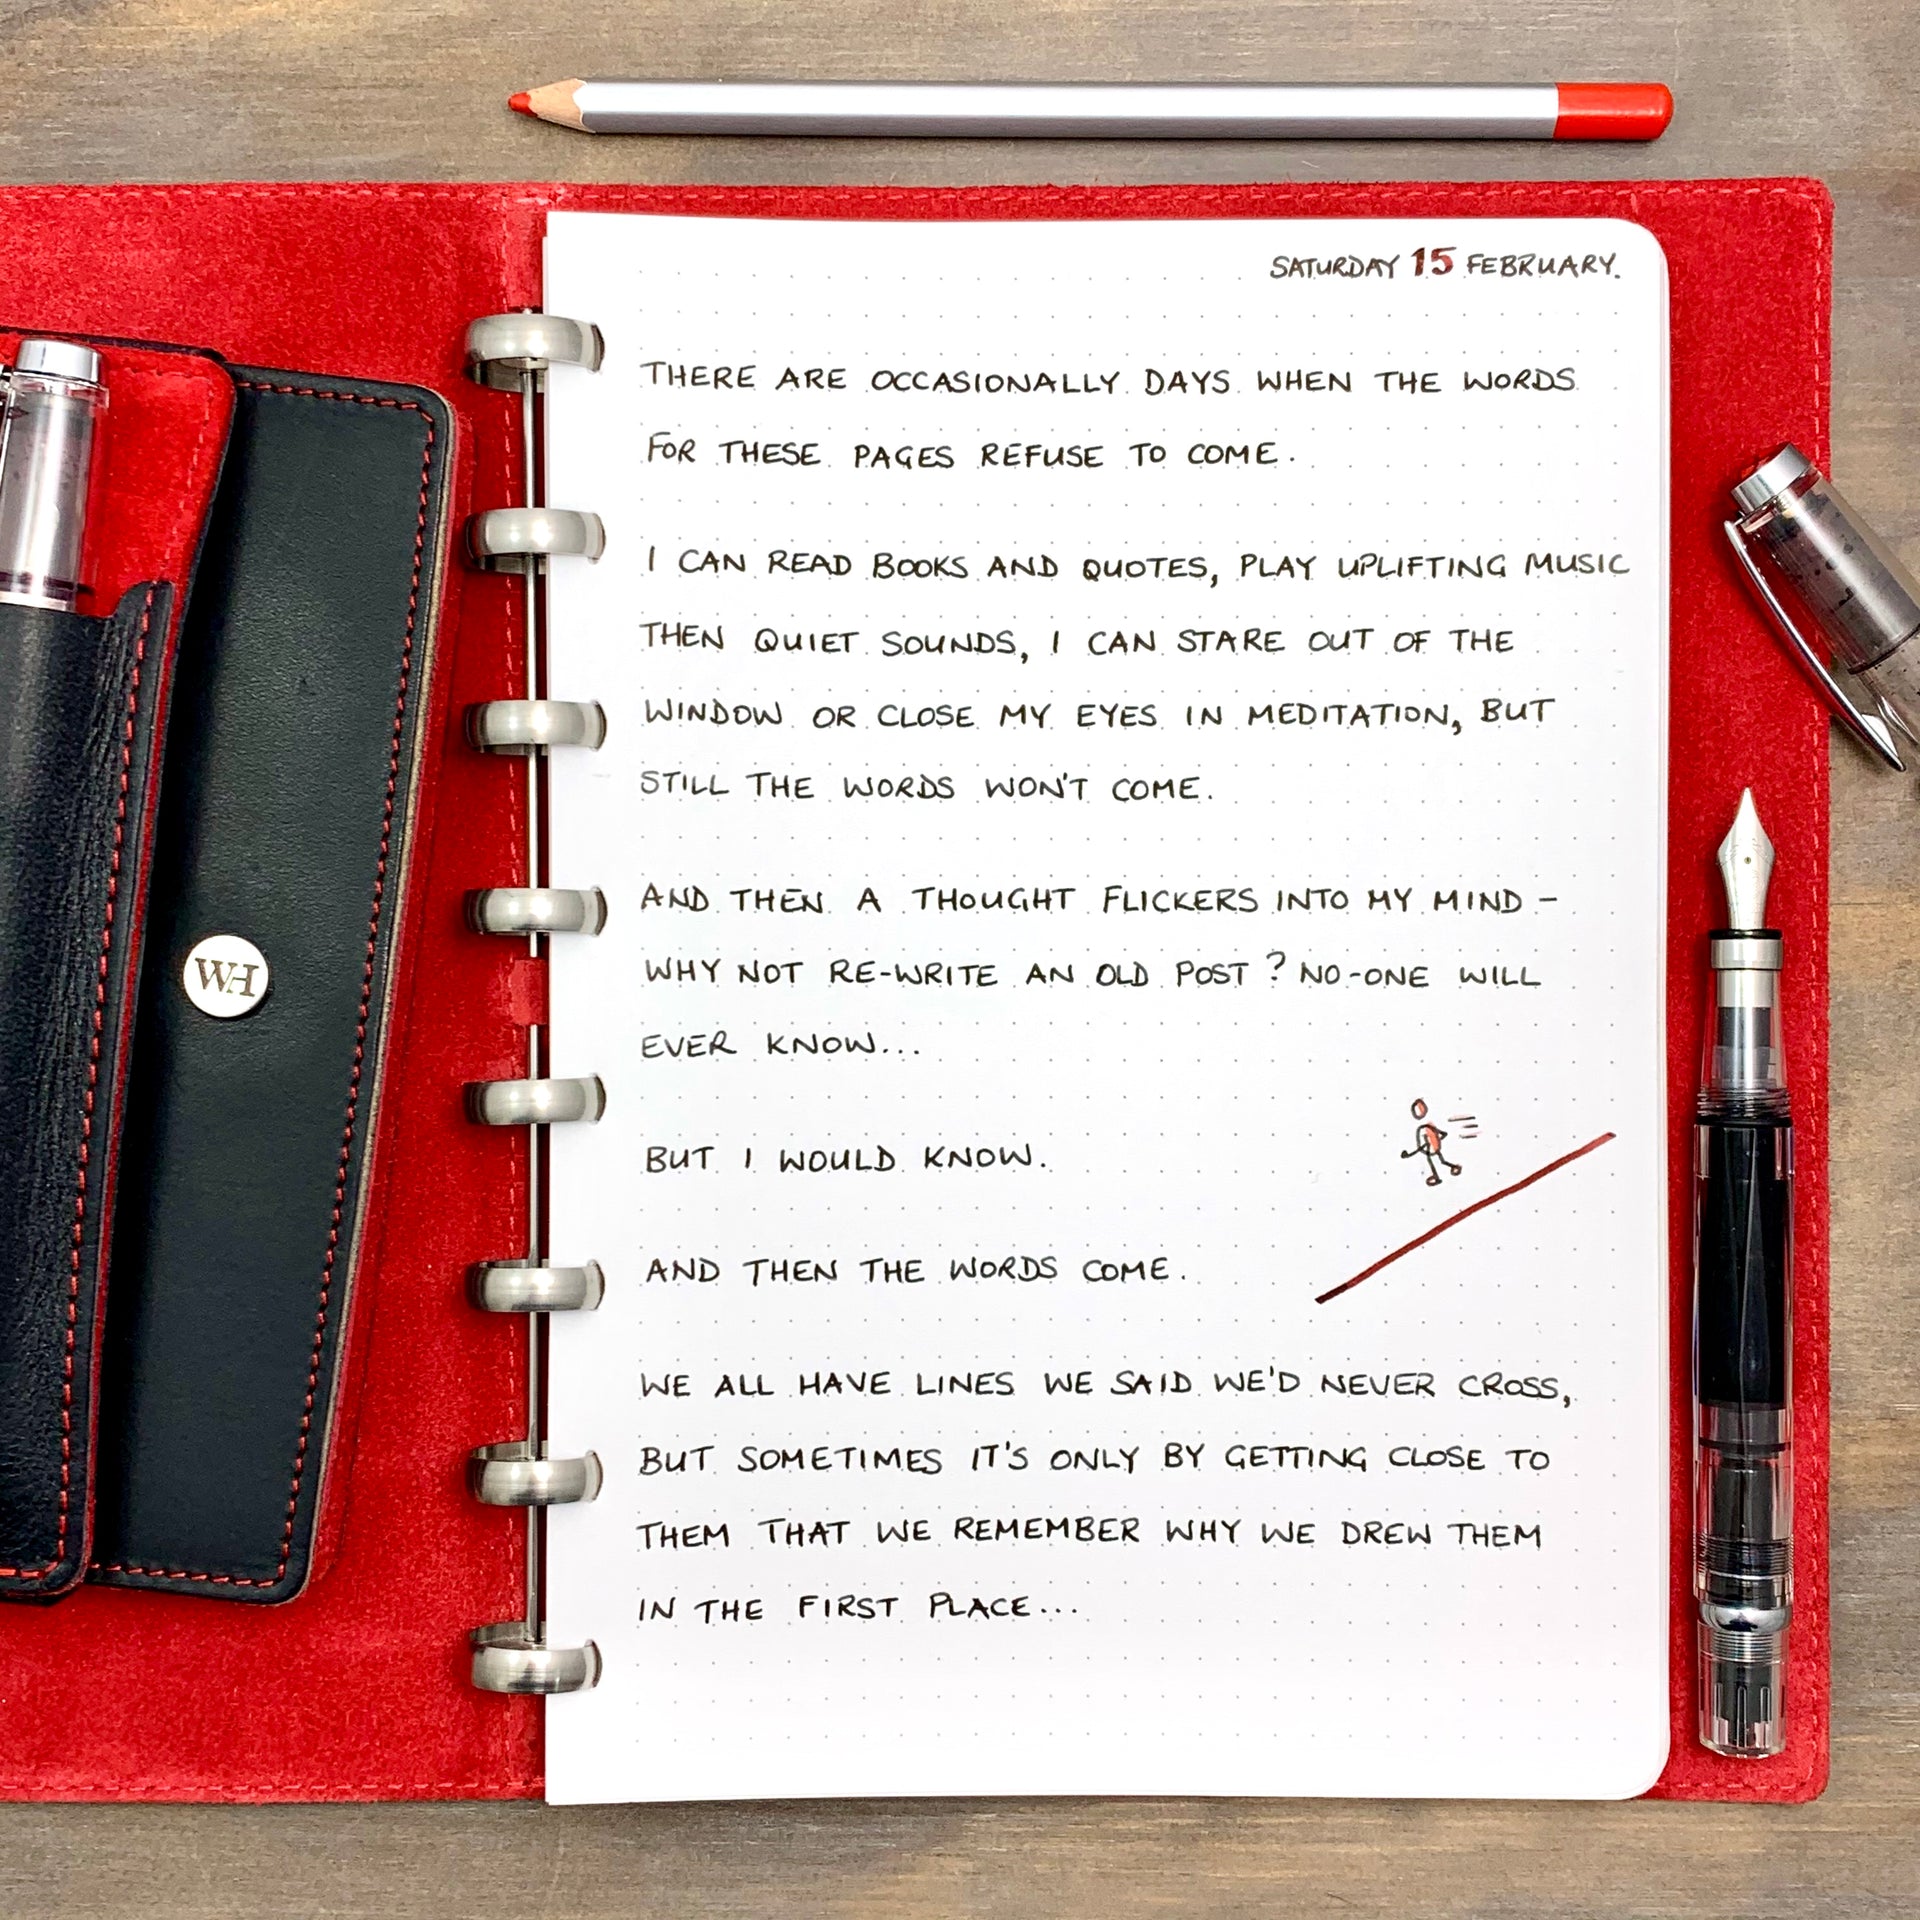 SATURDAY 15 FEBRUARY.
THERE ARE OCCASIONALLY DAYS WHEN THE WORDS
FOR THESE PAGES REFUSE TO COME.
I CAN READ BOOKS AND QUOTES, PLAY UPLIFTING MUSIC
THEN QUIET SOUNDS, I CAN STARE OUT OF THE
WINDOW OR CLOSE MY EYES IN MEDITATION, BUT
STILL THE WORDS WON'T COME.
AND THEN A THOUGHT FLICKERS INTO MY MIND -
WHY NOT RE-WRITE AN OLD POST? NO-ONE WILL
EVER KNOW...
BUT I WOULD KNOW.
AND THEN THE WORDS COME.
WE ALL HAVE LINES WE SAID WE'D NEVER CROSS,
BUT SOMETIMES IT'S ONLY BY GETTING CLOSE TO
THEM THAT WE REMEMBER WHY WE DREW THEM
IN THE FIRST PLACE...
WH